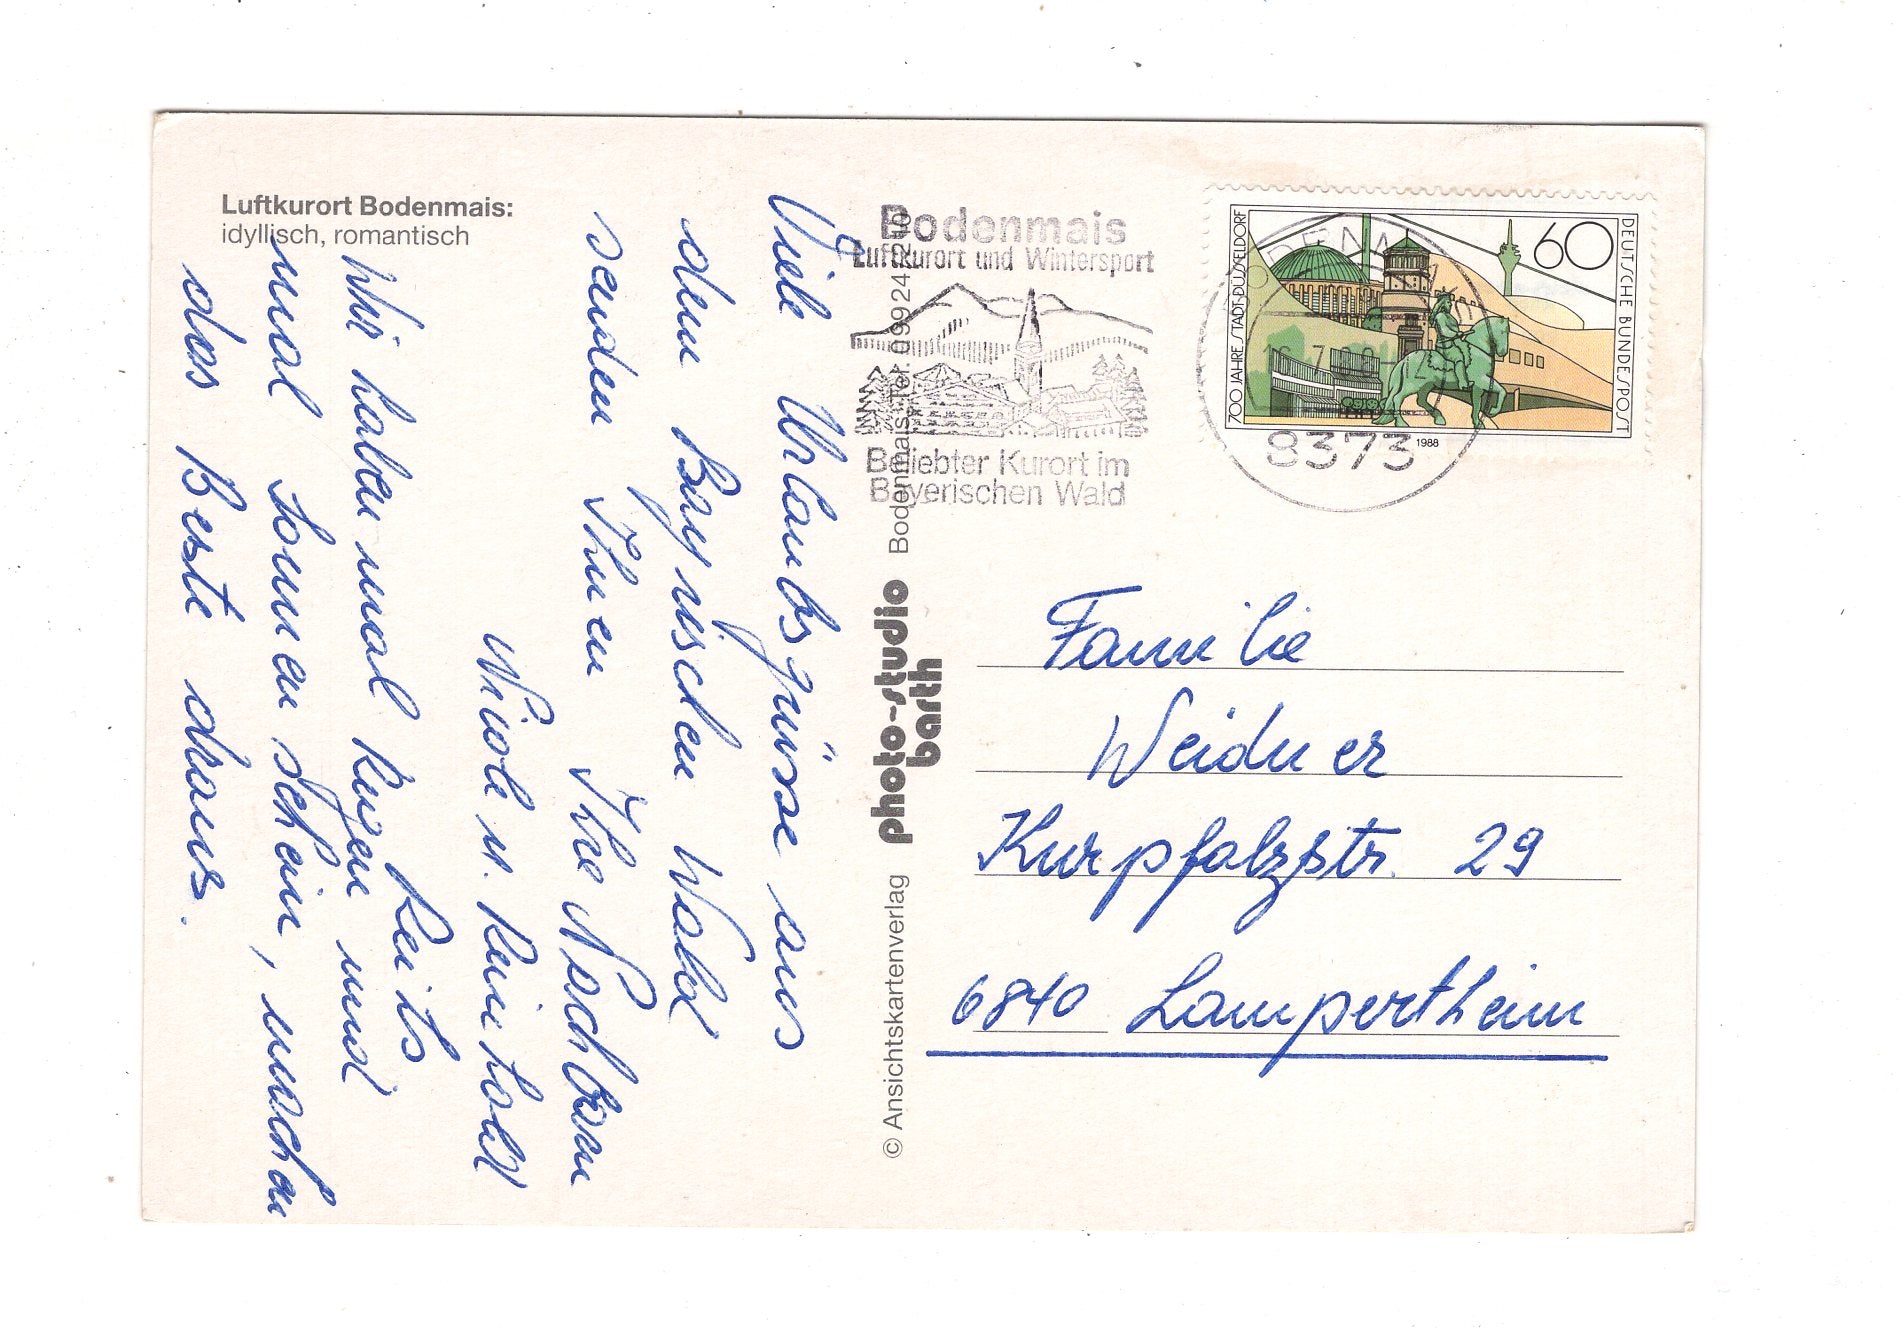 Luftkurort Bodenmais:
idyllisch, romantisch
Viele Urlaubsgrüsse aus
dem Bayrischen Wald
senden Ihnen Ihre Nachbarn
Nicole u. Reinhold
Reits
Wir haben mal Regen und
mal Sonnenschein, machen
das Beste draus.
© Ansichtskartenverlag photo-studio barth Bodenmais · Tel. 09924/210
Bodenmais
Luftkurort und Wintersport
Beliebter Kurort im
Bayerischen Wald
BODENMAIS 1
8373
700 JAHRE STADT DÜSSELDORF
60
DEUTSCHE BUNDESPOST
1988
Familie
Weidner
Kurpfalzstr. 29
6840 Lampertheim